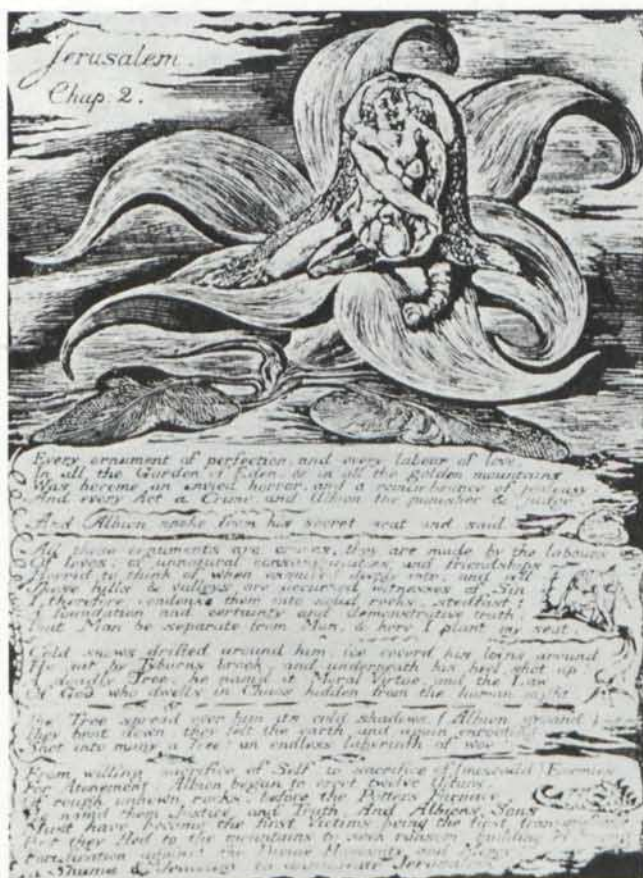 Jerusalem.
Chap 2.
Every ornament of perfection, and every labour of love,
In all the Garden of Eden, & in all the golden mountains
Was become an envied horror, and a remembrance of jealousy
And every Act a Crime, and Albion the punisher & judge.
And Albion spoke from his secret seat and said
All these ornaments are crimes, they are made by the labours
Of loves, of unnatural consanguinities and friendships
Horrid to think of when enquired deeply into; and all
These hills & valleys are accursed witnesses of Sin
I therefore condense them into solid rocks, stedfast
A foundation and certainty and demonstrative truth
That Man be separate from Man, & here I plant my seat.
Cold snows drifted around him: ice coverd his loins around
He sat by Tyburns brook, and underneath his heel, shot up
A deadly Tree, he nam'd it Moral Virtue, and the Law
Of God who dwells in Chaos hidden from the human sight.
The Tree spread over him its cold shadows, (Albion groand)
They bent down, they felt the earth and again enrooting
Shot into many a Tree! an endless labyrinth of woe!
From willing sacrifice of Self, to sacrifice of (miscall'd) Enemies
For Atonement: Albion began to erect twelve Altars,
Of rough unhewn rocks, before the Potters Furnace
He nam'd them Justice, and Truth. And Albions Sons
Must have become the first Victims, being the first transgressors
But they fled to the mountains to seek ransom: building A
Fortification against the Divine Humanity and Mercy
In Shame & Jealousy to annihilate Jerusalem